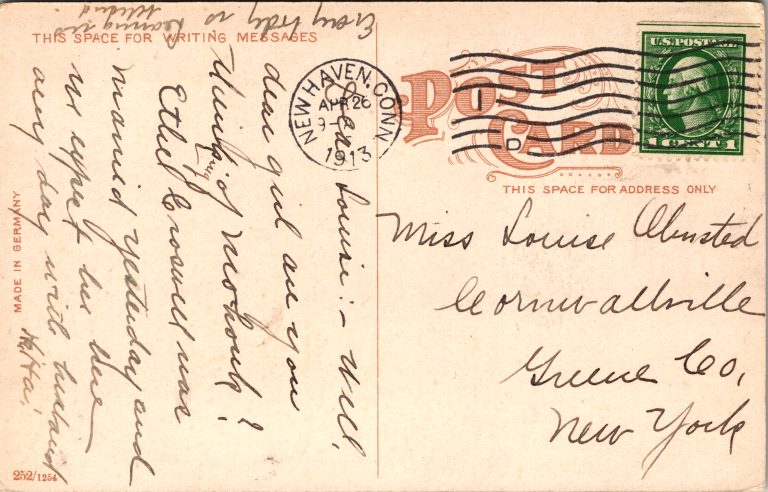 THIS SPACE FOR WRITING MESSAGES
POST
CARD
THIS SPACE FOR ADDRESS ONLY
U.S. POSTAGE
1 CENT 1
NEW HAVEN, CONN
APR 26
1913
1
D
Miss Louise Olmsted
Cornwallville
Greene Co,
New York
Dear Louise:- Well,
dear girl are you
thinking of Mohonk?
Ethel Croswell was
married yesterday and
we expect her here
any day with husband
Every body is
MADE IN GERMANY
252/1254